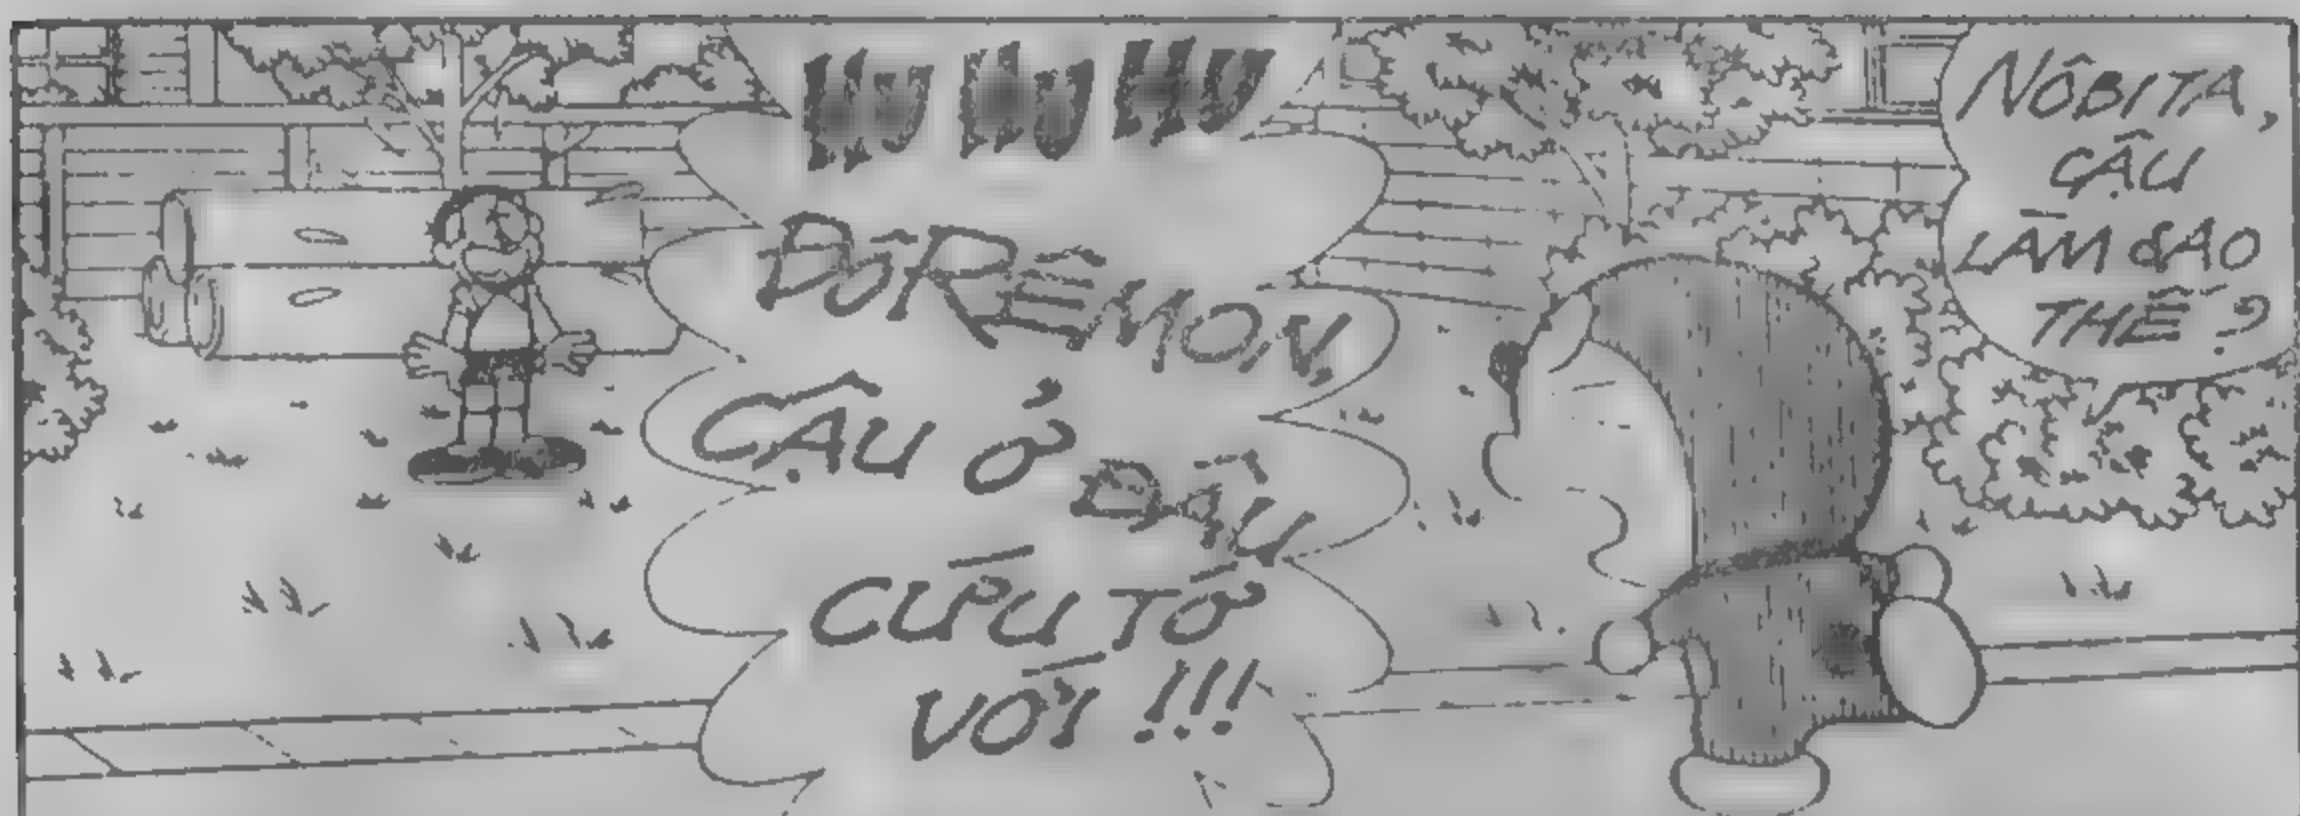 HU HU HU
ĐÔRÊMON,
CẬU Ở ĐÂU
CỨU TỚ
VỚI !!!
NÔBITA,
CẬU
LÀM SAO
THẾ ?